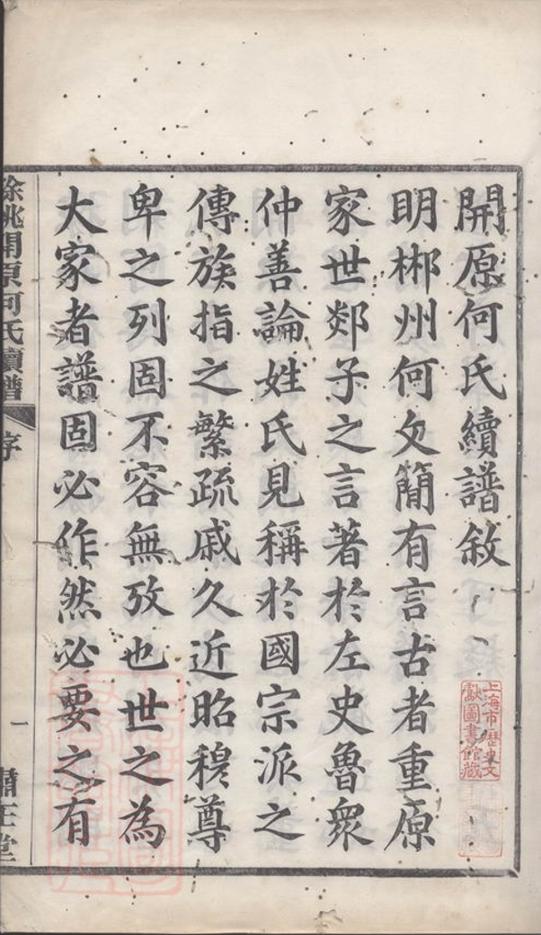 開原何氏續譜敘
明郴州何文簡有言古者重原
家世郯子之言著於左史魯眾
仲善論姓氏見稱於國宗派之
傳族指之繁疏戚久近昭穆尊
卑之列固不容無攷也世之為
大家者譜固必作然必要之有
餘姚開原何氏續譜
序
一
上海市歷史文
獻圖書館藏